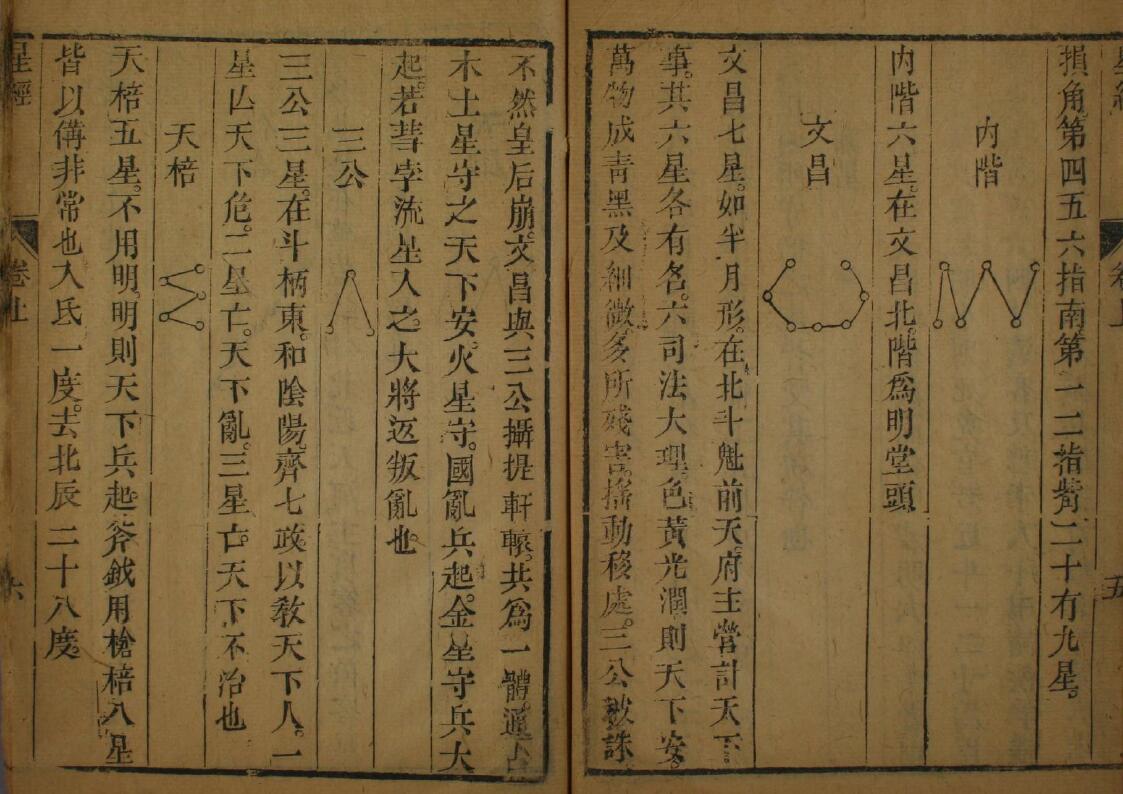 損角第四五六指南第一二指觜二十有九星。
内階
内階六星。在文昌北。階爲明堂頭
文昌
文昌七星。如半月形。在北斗魁前天。府主營計天下
事。其六星各有名。六司法大理。色黃光潤則天下安。
萬物成青黑及細微。多所殘害。摇動移處。三公被誅
五
不然皇后崩。文昌與三公攝提軒轅。共爲一體通占
木土星守之天下安。火星守。國亂兵起。金星守兵大
起。若彗孛流星入之。大將返叛亂也。
三公
三公三星。在斗柄東。和陰陽。齊七政。以教天下人。一
星亾天下危。二星亡。天下亂。三星亡。天下不治也
天棓
天棓五星。不用明。明則天下兵起。斧鉞用槍棓八星
皆以偹非常也入氐一度。去北辰二十八度。
星經 卷上 六